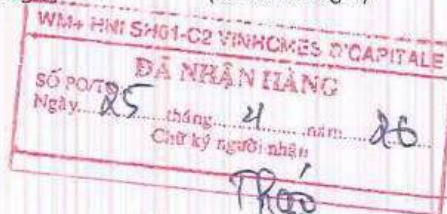 WM+ HNI SH01-C2 VINHCOMES D'CAPITALE
ĐÃ NHẬN HÀNG
SỐ PO/TO
Ngày 25 tháng 4 năm 26
Chữ ký người nhận
Thảo